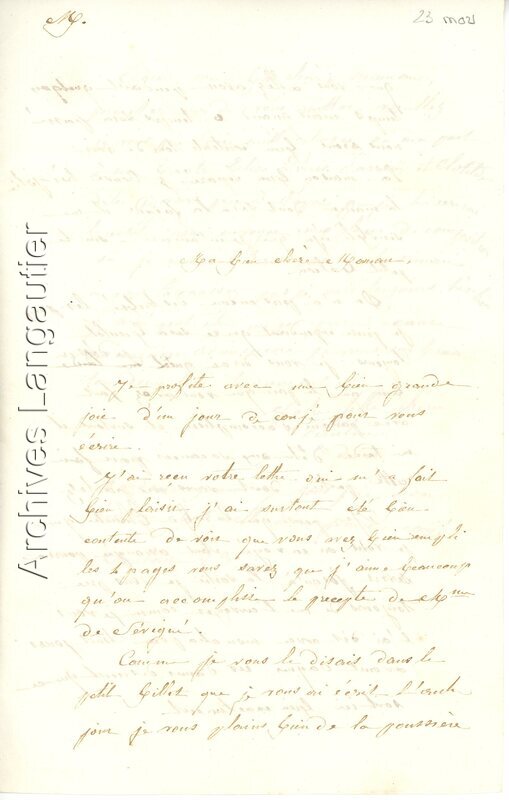 M.
23 mai
Archives Langautier
Ma bien chère Maman,
Je profite avec une bien grande
joie d'un jour de conjé pour vous
écrire.
J'ai reçu votre lettre qui m'a fait
bien plaisir j'ai surtout été bien
contente de voir que vous avez bien empli
les 4 pages vous savez que j'aime beaucoup
qu'on accomplisse le precepte de Mme
de Sévigné.
Comme je vous le disais dans le
petit billet que je vous ai écrit l'autre
jour je vous plains bien de la poussière